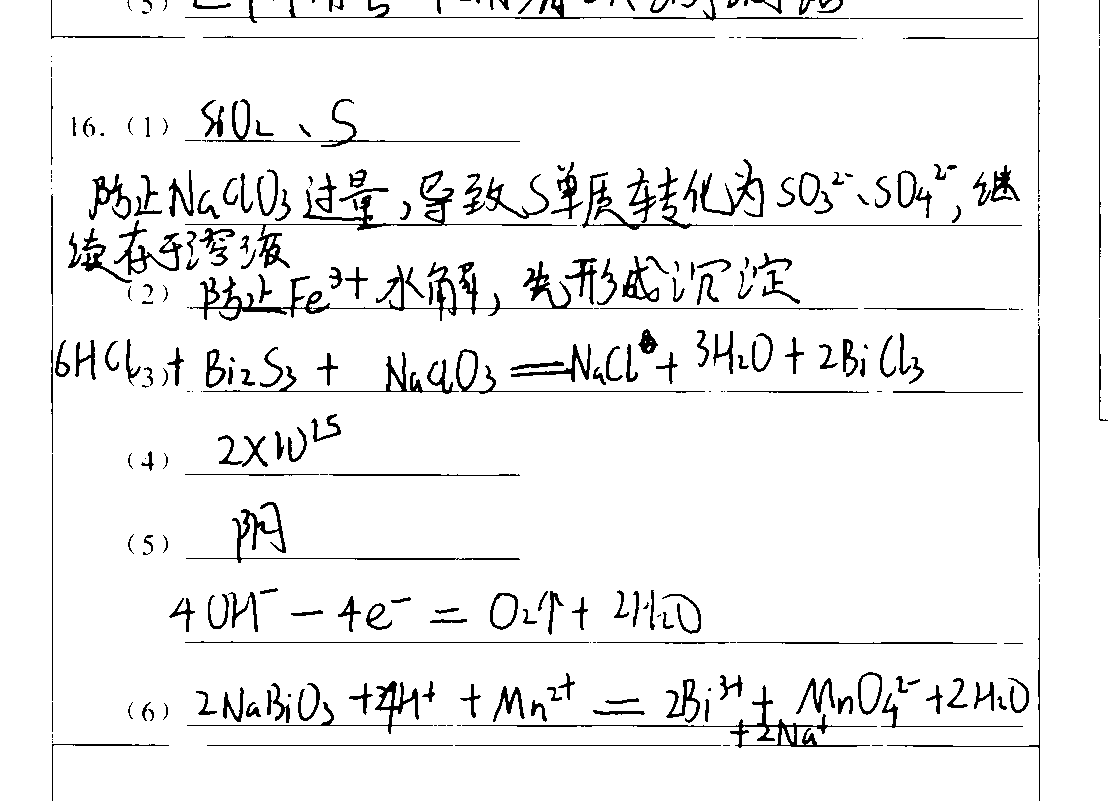 (3)
16. (1) SiO₂、S
防止NaClO₃过量,导致S单质转化为SO₃²⁻、SO₄²⁻,继
续存于溶液
(2) 防止Fe³⁺水解,先形成沉淀
6HCl(3)+ Bi₂S₃ + NaClO₃ = NaCl + 3H₂O + 2BiCl₃
(4) 2×10¹⁵
(5) 阴
4OH⁻ − 4e⁻ = O₂↑ + 2H₂O
(6) 2NaBiO₃ + 4H⁺ + Mn²⁺ = 2Bi³⁺ + MnO₄²⁻ + 2H₂O
+ 2Na⁺